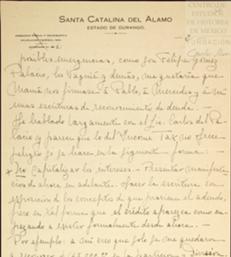 SANTA CATALINA DEL ALAMO
ESTADO DE DURANGO.
CENTRO DE
ESTUDIOS
DE HISTORIA
DE MEXICO
FUNDACIÓN
posibles emergencias, como son Felipe Gómez
Palacio, la Laguna y demás, me gustaría que
Mamá nos firmase á Pablo, á Mercedes y á mi
unas escrituras de reconocimiento de deuda.
He hablado largamente con el Lic. Carlos del Pa-
lacio y parece que lo del Income Tax no ofrece
peligro si se hacen en la siguiente forma:
No capitalizar los intereses. Presentar manifies-
tos de ahora en adelante. Hacer la escritura con
expresión de los conceptos de que proviene el adeudo,
pero en tal forma que el crédito aparezca como em-
pezando á existir formalmente desde ahora.
Por ejemplo: a mi creo que solo se me quedaron